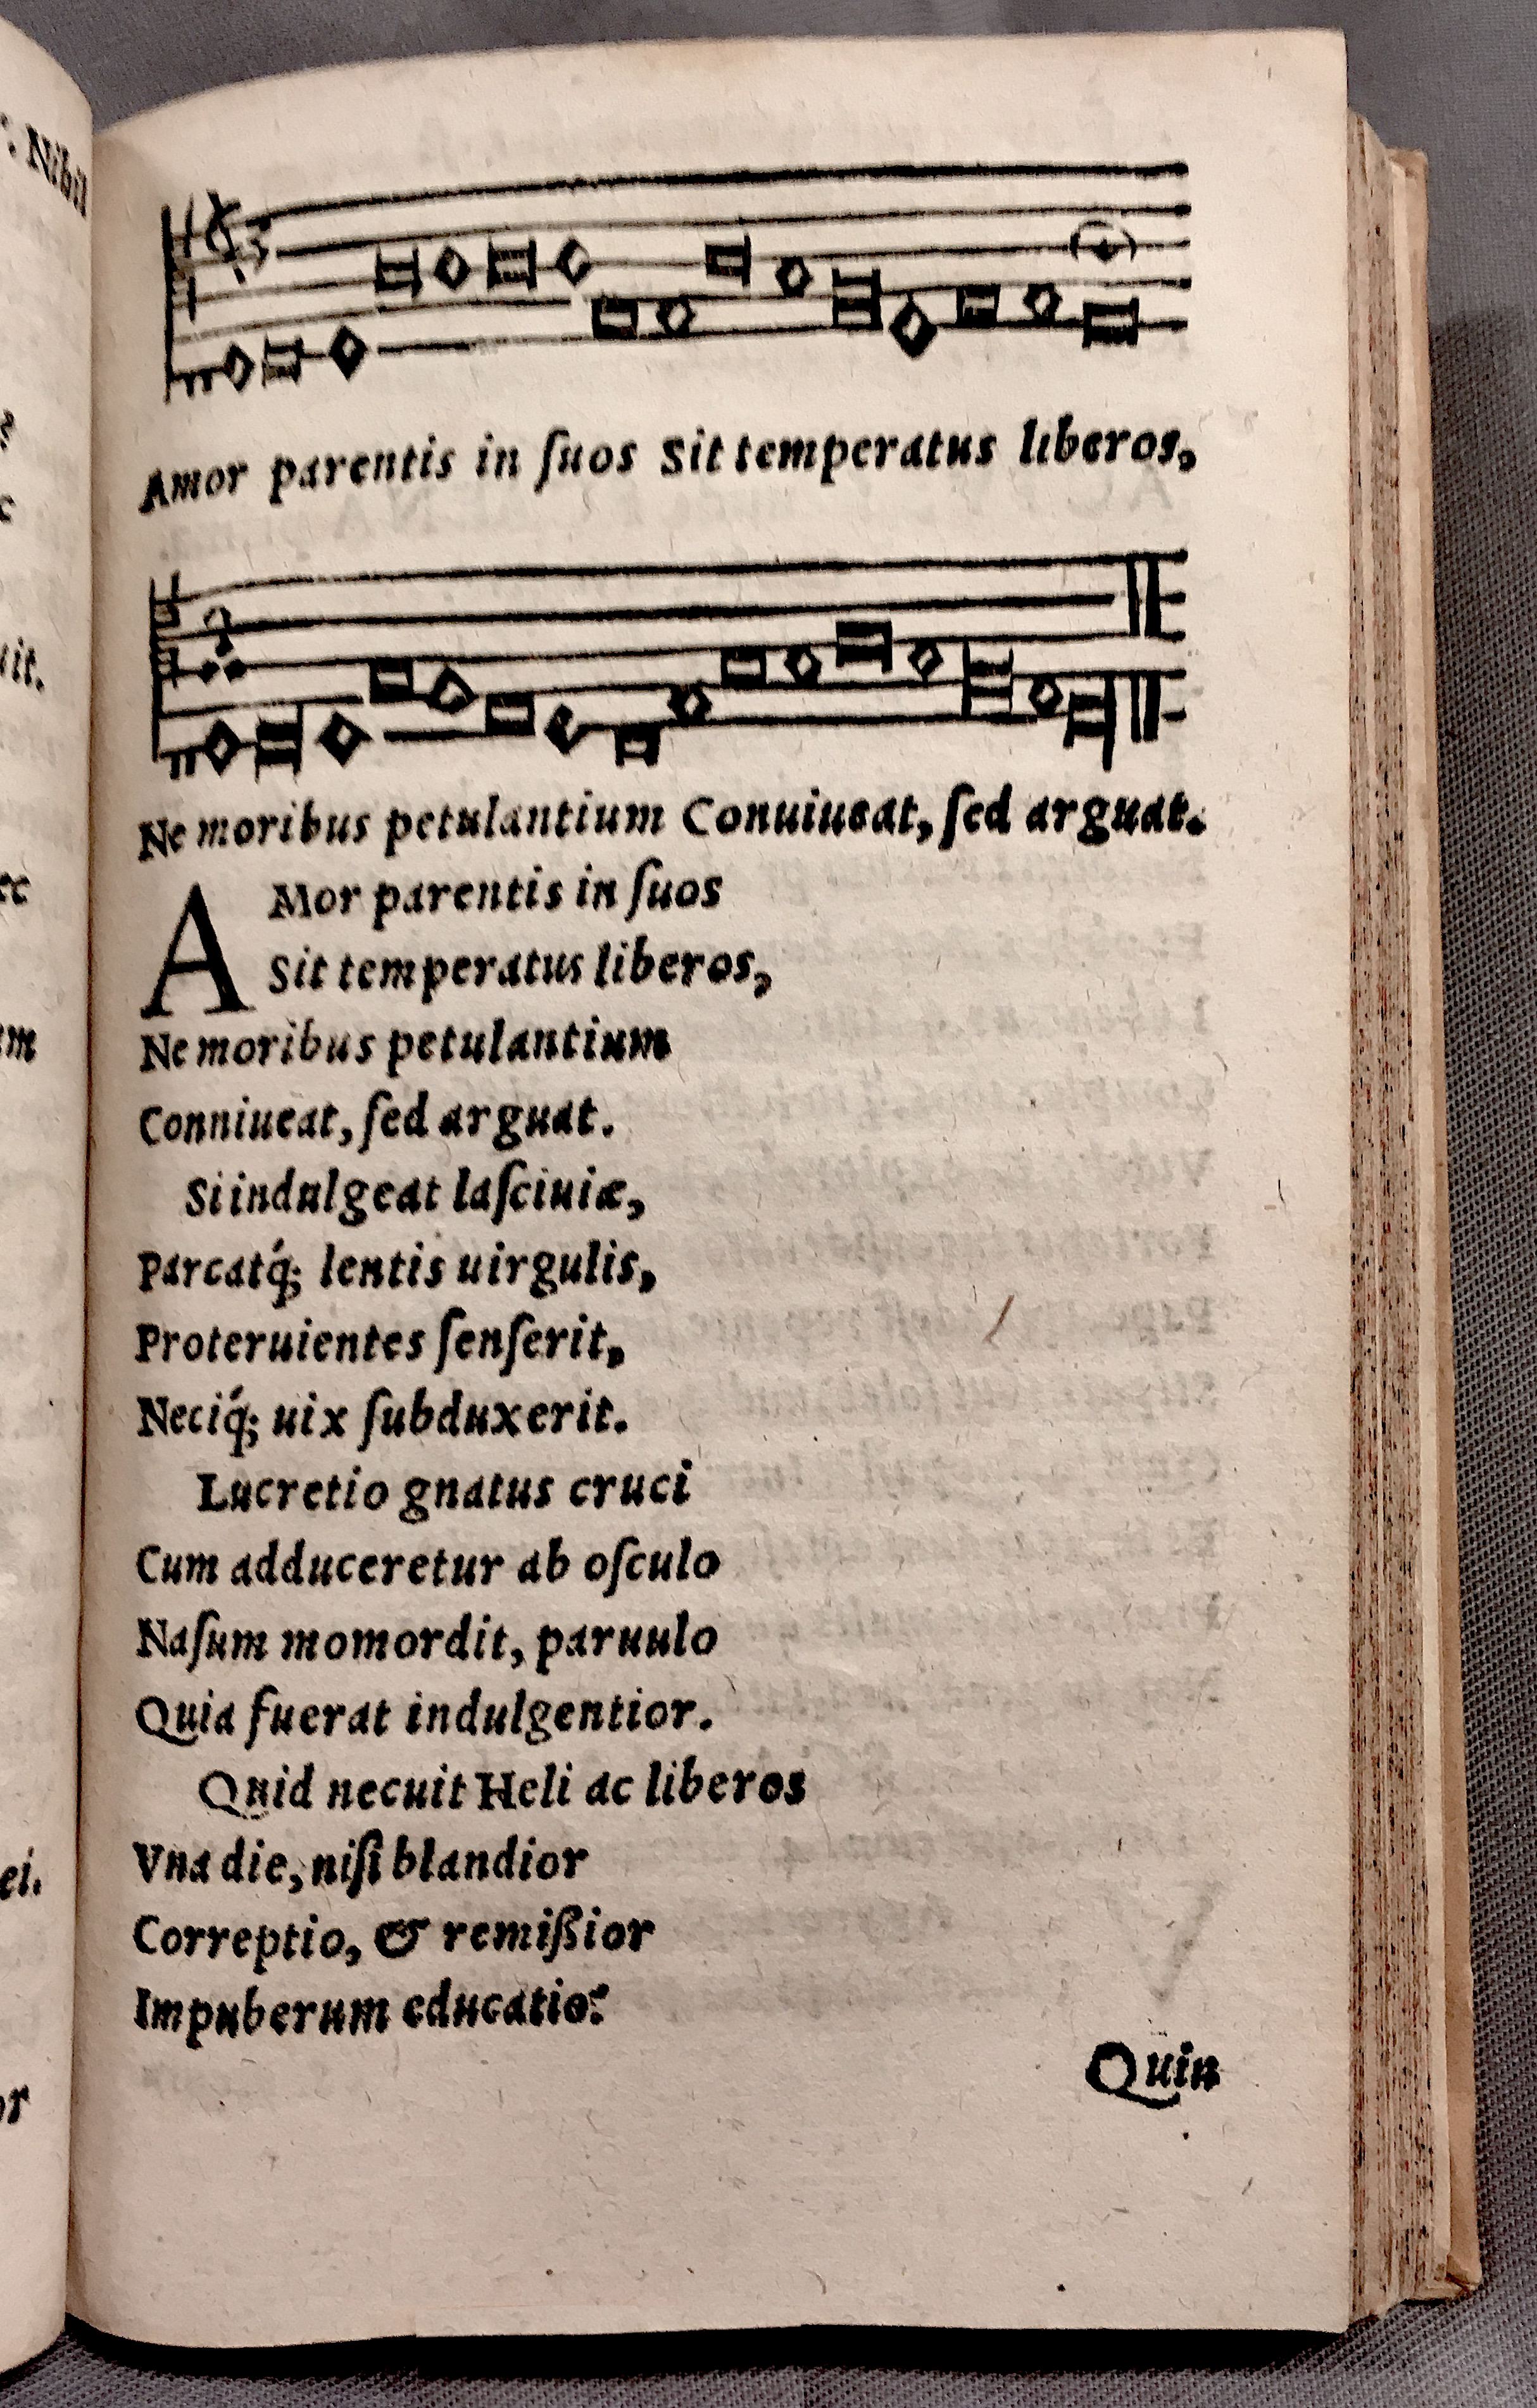 : Nihil
Amor parentis in ſuos Sit temperatus liberos,
Ne moribus petulantium Conuiueat, ſed arguat.
AMor parentis in ſuos
Sit temperatus liberos,
Ne moribus petulantium
Conniueat, ſed arguat.
Si indulgeat laſciuiæ,
Parcatq́; lentis uirgulis,
Proteruientes ſenſerit,
Neciq́; uix ſubduxerit.
Lucretio gnatus cruci
Cum adduceretur ab oſculo
Naſum momordit, paruulo
Quia fuerat indulgentior.
Quid necuit Heli ac liberos
Vna die, niſi blandior
Correptio, & remißior
Impuberum educatio?
Quin